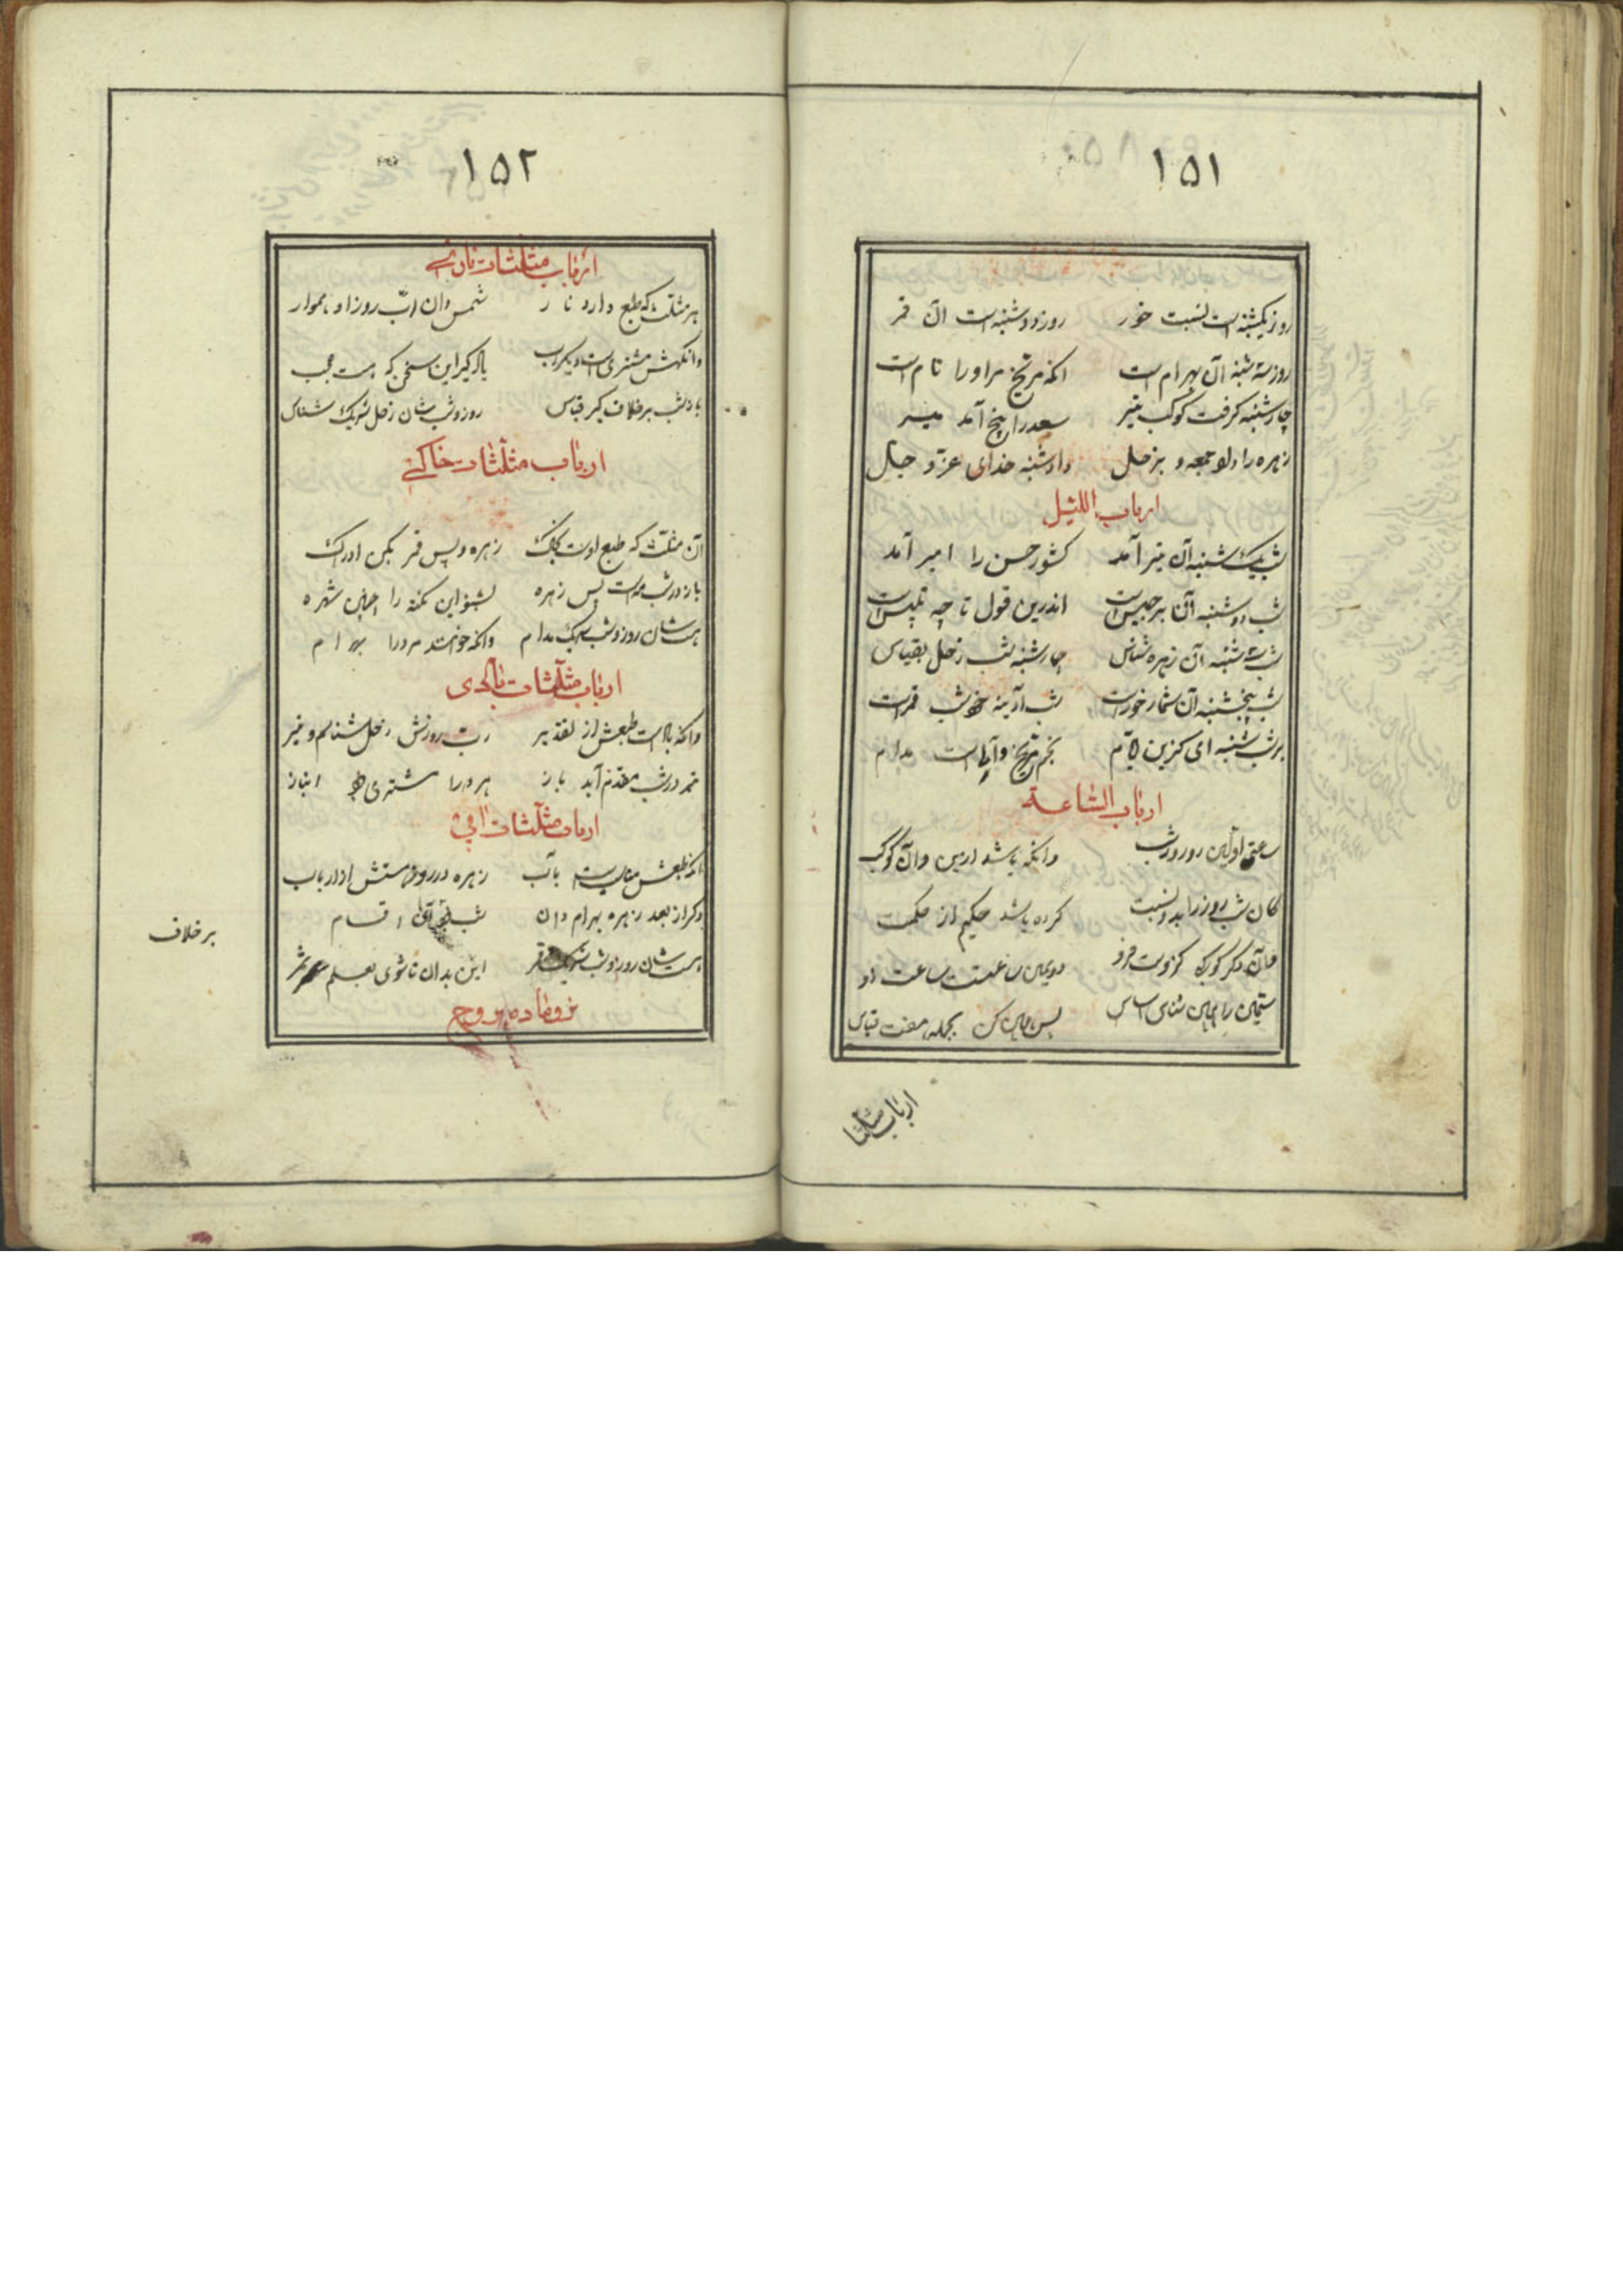 ۱۵۱
روز یکشنبه است نسبت خور روز دوشنبه است آن قمر
روز سه شنبه آن بهرام است انکه مریخ مر او را نام است
چارشنبه گرفت کوکب تیر سعد را پنج آمد
زهره را داد جمعه و بزحل داد شنبه خدای عز و جل
ارباب اللیل
شب یکشنبه آن تیر آمد کشور حسن را امیر آمد
شب دوشنبه آن برجیس است اندرین قول تا چه تلبیس است
شب سه شنبه آن زهره شناس چارشنبه شب زحل بقیاس
شب پنجشنبه آن شمار خور است شب آدینه شب قمر است
هر شب شنبه ای گزین نجم مریخ مدام
ارباب الساعة
ساعت اولین روز و شب وانکه باشد درین کوکب
کان شب و روز را بدو نسبت کرده باشد حکیم از حکمت
وان دگر کوکب کزوست فرو دویمین ساعتست ساعت او
سیمین را همین شناس اساس پس همین کن بجمله هفت قیاس
ارباب مثلثا
۱۵۲
ارباب مثلثات ناری
هر مثلث که طبع دارد نار شمس دان رب روز او هموار
وانگهش مشتری است دیگر رب یاد گیر این سخن که هست عجب
باز شب بر خلاف گیر قیاس روز و شب شان زحل شریک شناس
ارباب مثلثات خاکی
آن مثلث که طبع اوست خاک زهره و پس قمر بکن ادراک
باز در شب مه است پس زهره بشنو این نکته را
هست شان روز و شب شریک مدام وانکه خوانند مر ورا بهرام
ارباب مثلثات بادی
وانکه باد است طبعش از تقدیر رب روزش زحل شناسم و تیر
تیر در شب مقدم آید باز هر دو را مشتری بود انباز
ارباب مثلثات آبی
انکه طبعش مناسبست بآب زهره در روز هستش از ارباب
دگر از بعد زهره بهرام دان شب اقسام
هست شان روز و شب شریک قمر این بدان تا شوی بعلم سمر
نر و ماده بروج
بر خلاف